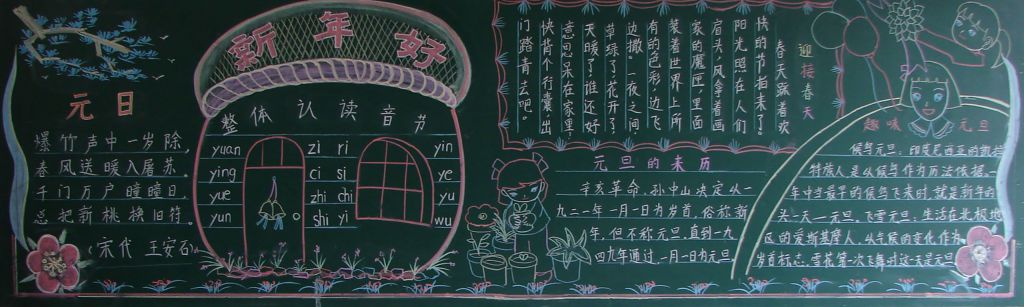 元日
爆竹声中一岁除,
春风送暖入屠苏。
千门万户曈曈日,
总把新桃换旧符。
(宋代 王安石)
新年好
整体认读音节
yuan zi ri yin
ying ci si ye
yue zhi chi yu
yun shi yi wu
迎接春天
春天踩着欢
快的节拍来了!
阳光照在人们
肩头,风拿着画
家的魔匣,里面
装着世界上所
有的色彩,边飞
边撒。一夜之间,
草绿了花开了
天暖了谁还好
意思呆在家里,
快背个行囊出
门踏青去吧。
元旦的来历
辛亥革命,孙中山决定从一
九二一年一月一日为岁首,俗称新
年,但不称元旦,直到一九
四九年通过,一月一日为元旦。
趣味元旦
候鸟元旦:印度尼西亚的凯拉
特族人是以候鸟作为历法依据,一
年中当最早的候鸟飞来时,就是新年的
头一天一元旦,飞雪元旦:生活在北极地
区的爱斯基摩人,以气候的变化作为
岁首标志,雪花第一次飞舞时这一天是元旦